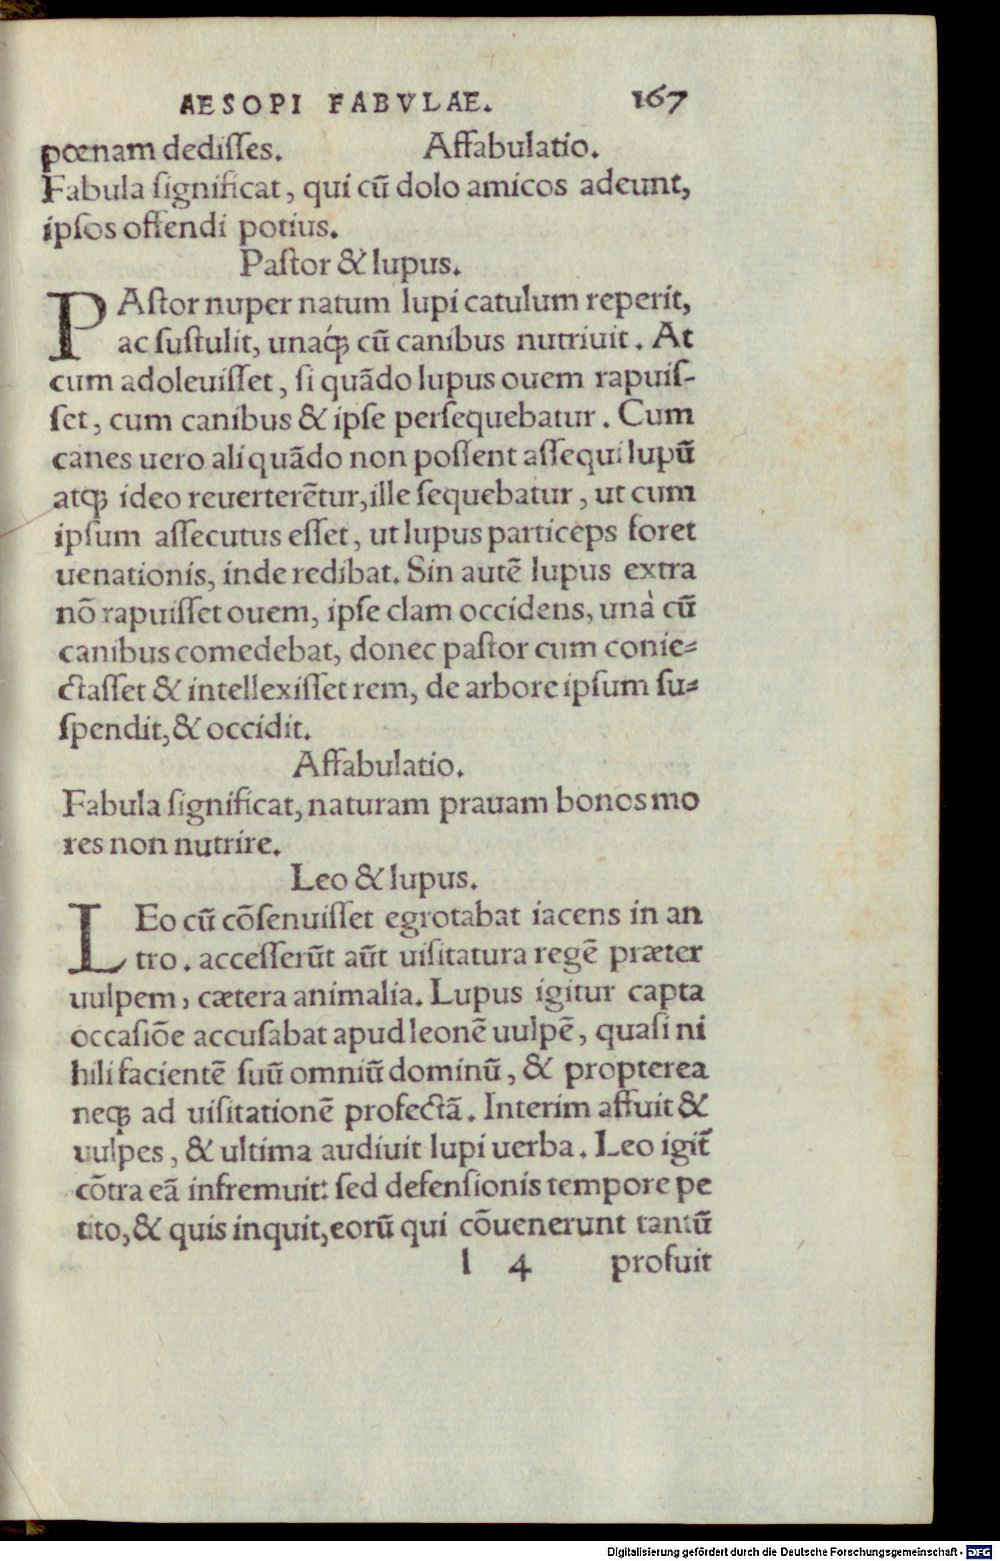 AESOPI FABVLAE. 167
pœnam dediſſes. Affabulatio.
Fabula ſignificat, qui cū dolo amicos adeunt,
ipſos offendi potius.
Paſtor & lupus.
PAſtor nuper natum lupi catulum reperit,
ac ſuſtulit, unaq́ꝫ cū canibus nutriuit. At
cum adoleuiſſet, ſi quādo lupus ouem rapuiſ-
ſet, cum canibus & ipſe perſequebatur. Cum
canes uero aliquādo non poſſent aſſequi lupū
atqꝫ ideo reuerterētur, ille ſequebatur, ut cum
ipſum aſſecutus eſſet, ut lupus particeps foret
uenationis, inde redibat. Sin autē lupus extra
nō rapuiſſet ouem, ipſe clam occidens, unà cū
canibus comedebat, donec paſtor cum conie-
ctaſſet & intellexiſſet rem, de arbore ipſum ſu-
ſpendit, & occidit.
Affabulatio.
Fabula ſignificat, naturam prauam bonos mo
res non nutrire.
Leo & lupus.
LEo cū cōſenuiſſet egrotabat iacens in an
tro. acceſſerūt aūt uiſitatura regē præter
uulpem, cætera animalia. Lupus igitur capta
occaſiōe accuſabat apud leonē uulpē, quaſi ni
hili facientē ſuū omniū dominū, & propterea
neqꝫ ad uiſitationē profectā. Interim affuit &
uulpes, & ultima audiuit lupi uerba. Leo igit̄
cōtra eā infremuit: ſed defenſionis tempore pe
tito, & quis inquit, eorū qui cōuenerunt tantū
l 4 profuit
Digitalisierung gefördert durch die Deutsche Forschungsgemeinschaft - DFG